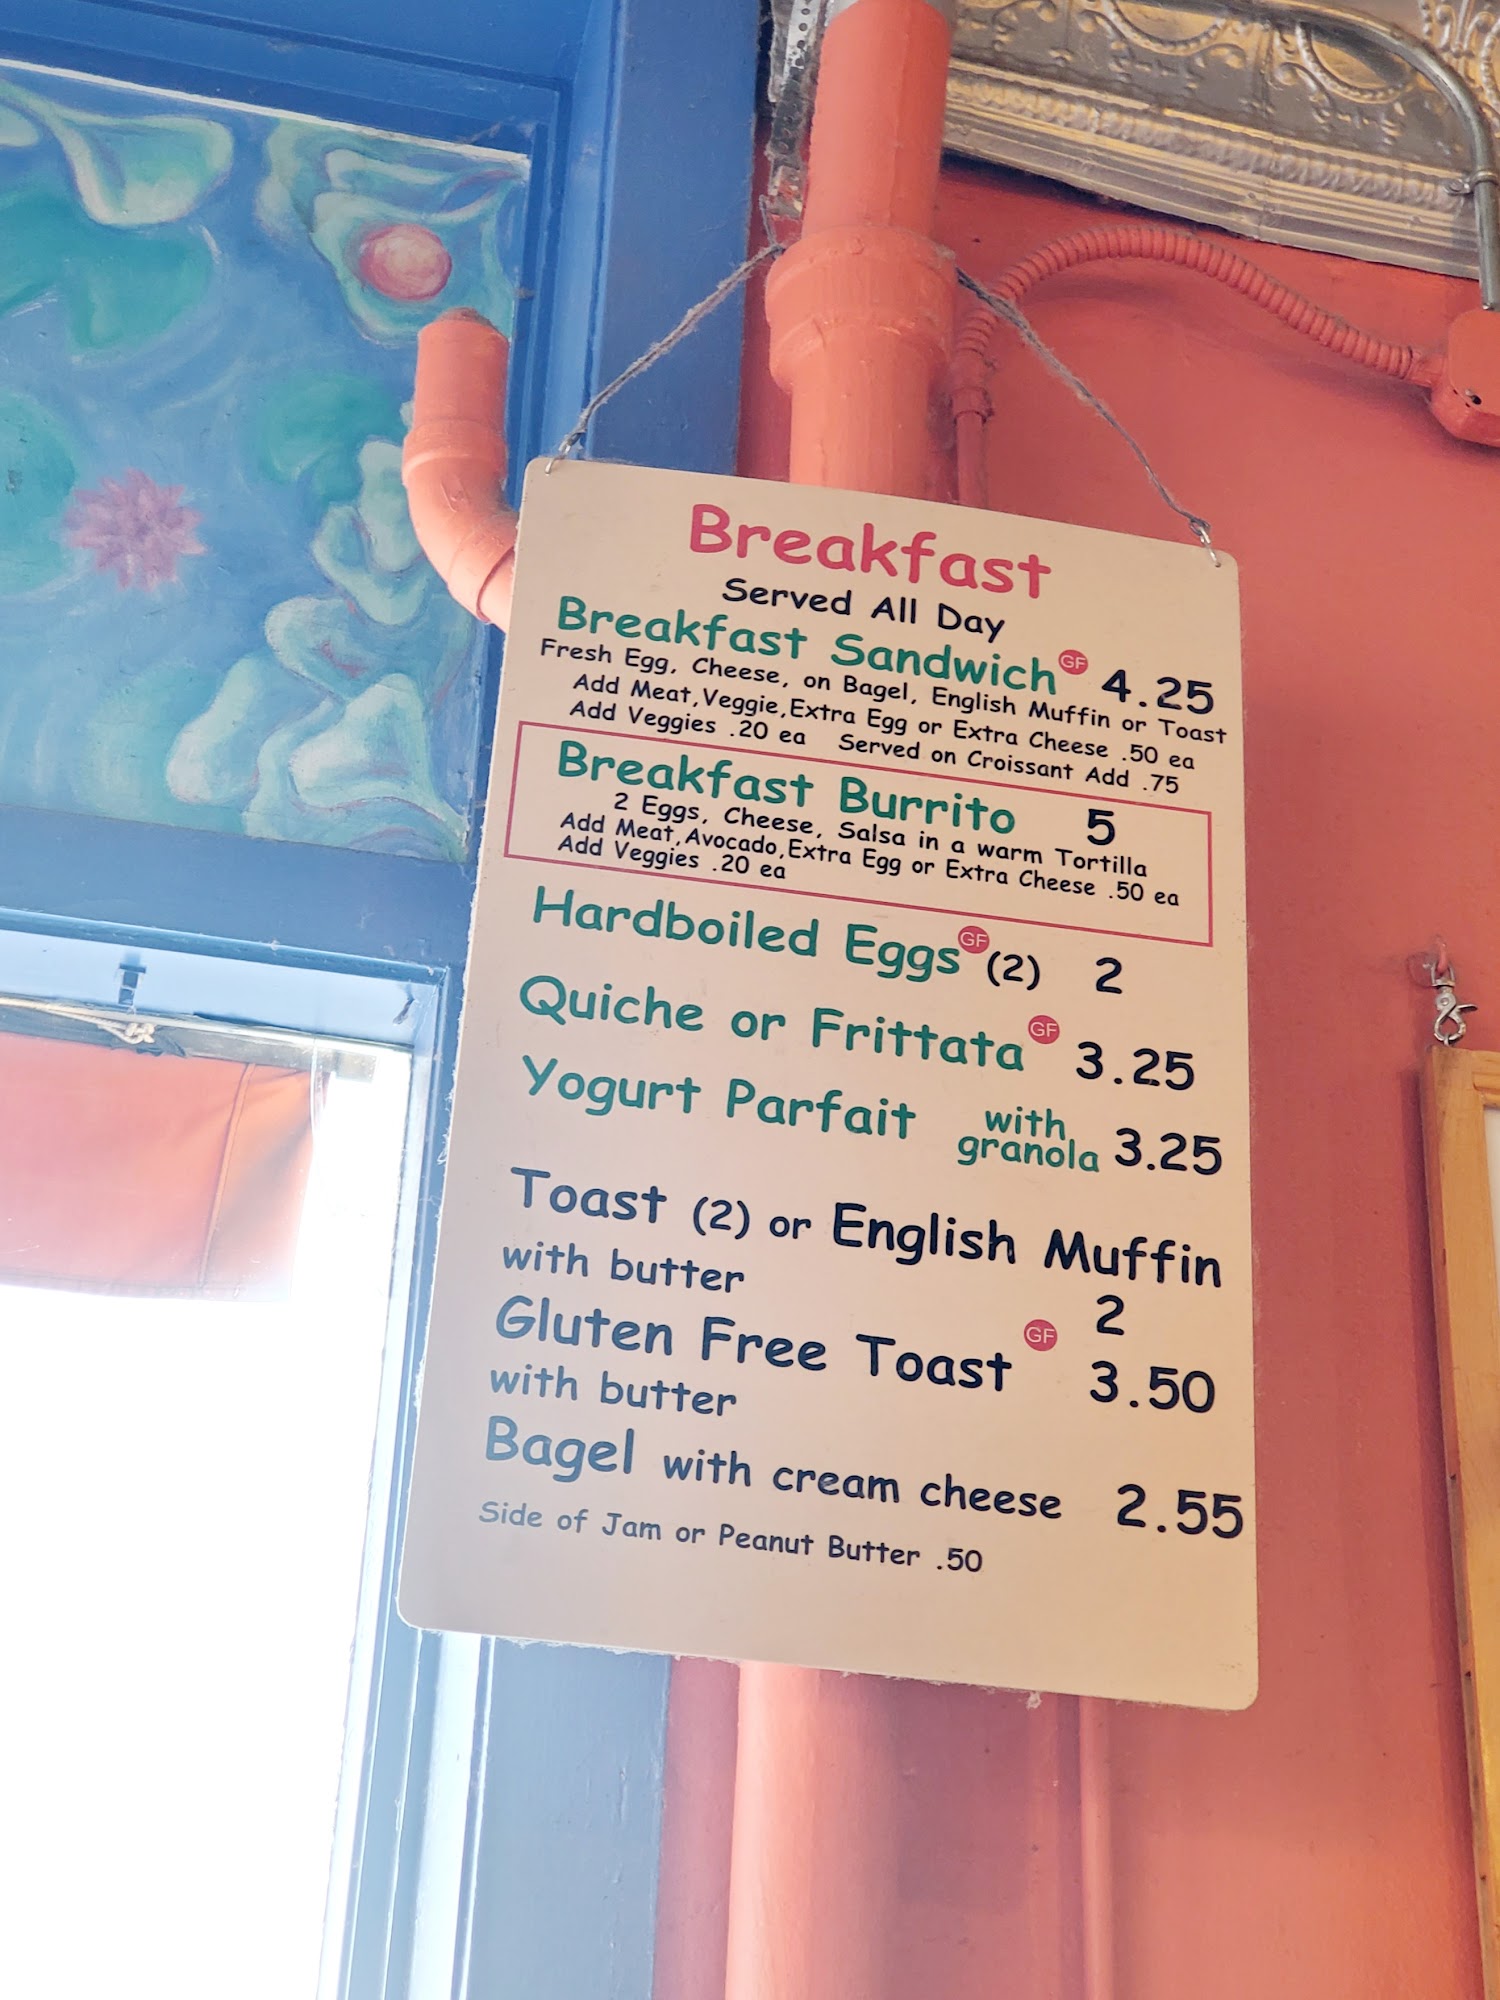 Breakfast
Served All Day
Breakfast Sandwich GF 4.25
Fresh Egg, Cheese, on Bagel, English Muffin or Toast
Add Meat,Veggie,Extra Egg or Extra Cheese .50 ea
Add Veggies .20 ea Served on Croissant Add .75
Breakfast Burrito 5
2 Eggs, Cheese, Salsa in a warm Tortilla
Add Meat,Avocado,Extra Egg or Extra Cheese .50 ea
Add Veggies .20 ea
Hardboiled Eggs GF (2) 2
Quiche or Frittata GF 3.25
Yogurt Parfait with granola 3.25
Toast (2) or English Muffin
with butter 2
Gluten Free Toast GF 3.50
with butter
Bagel with cream cheese 2.55
Side of Jam or Peanut Butter .50